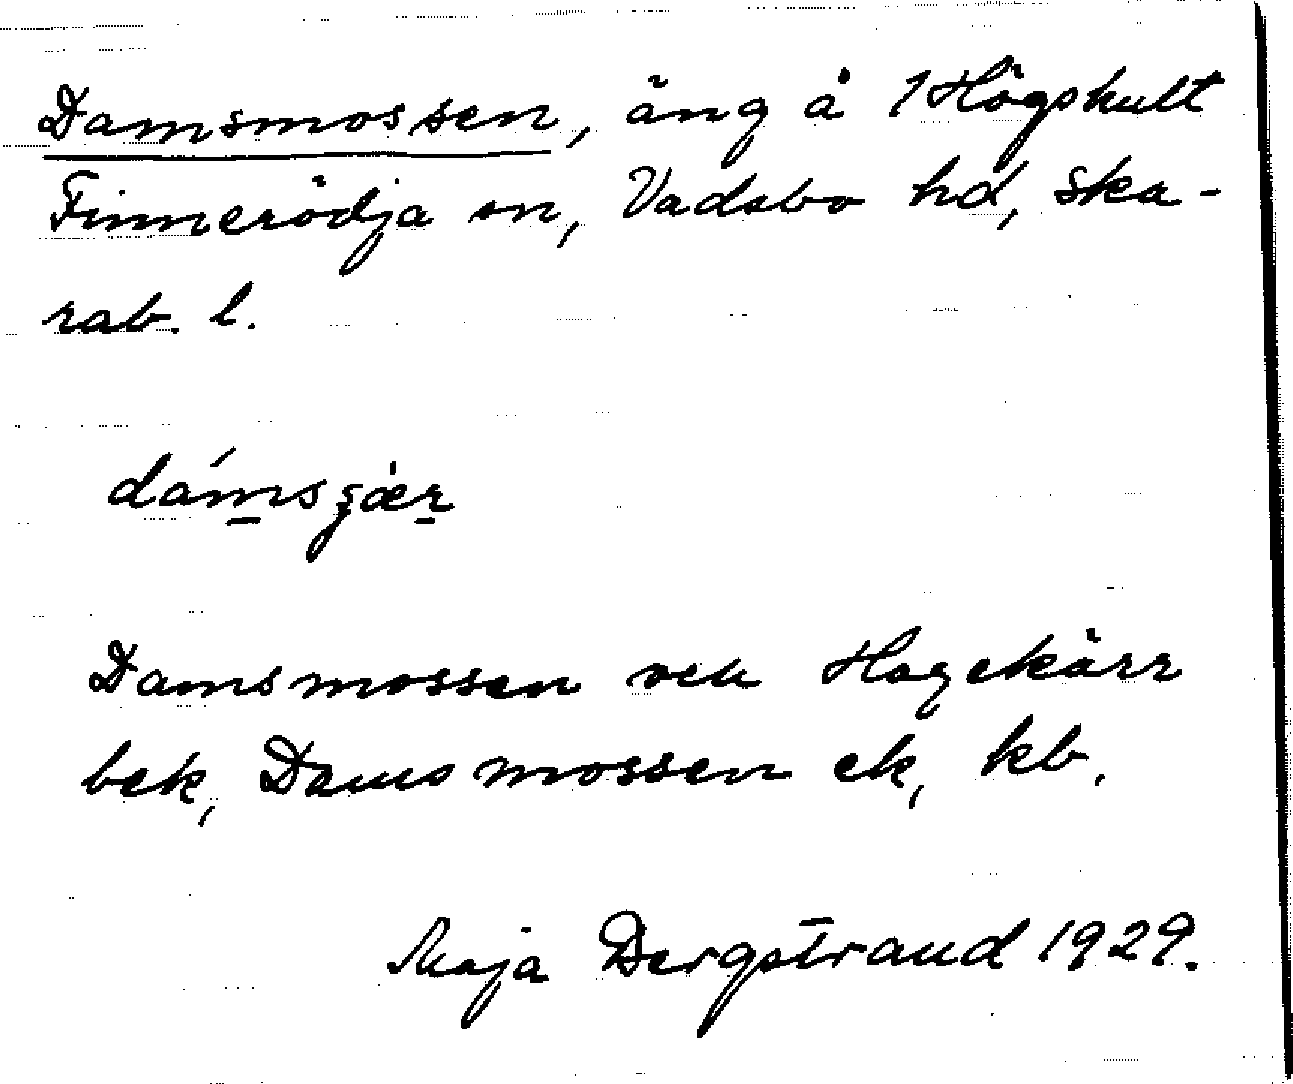 Damsmossen, äng å 1 Högshult
Finnerödja sn, Vadsbo hd, Ska-
rab. l.
Damsmossen Hagekärr
bek, Damsmossen ek, kb.
Maja Bergstrand 1929.